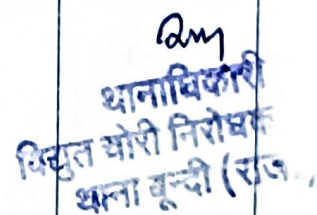 थानाधिकारी
विद्युत चोरी निरोधक
थाना बून्दी (राज.,